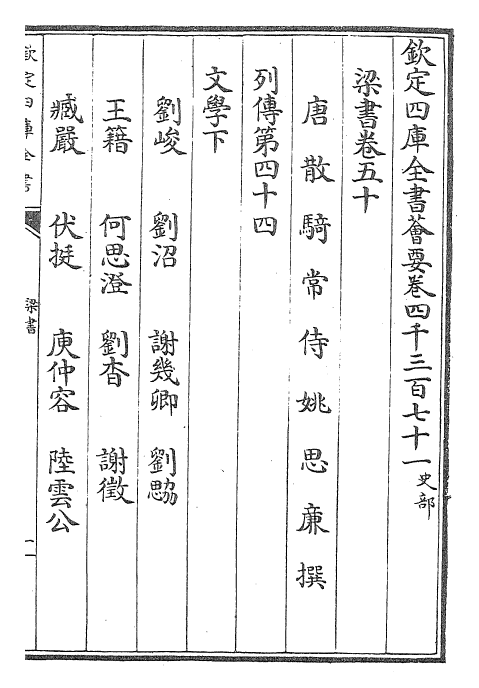 欽定四庫全書薈要卷四千三百七十一史部
梁書卷五十
唐散騎常侍姚思廉撰
列傳第四十四
文學下
劉峻 劉沼 謝幾卿 劉勰
王籍 何思澄 劉杳 謝徵
臧嚴 伏挺 庾仲容 陸雲公
欽定四庫全書
梁書